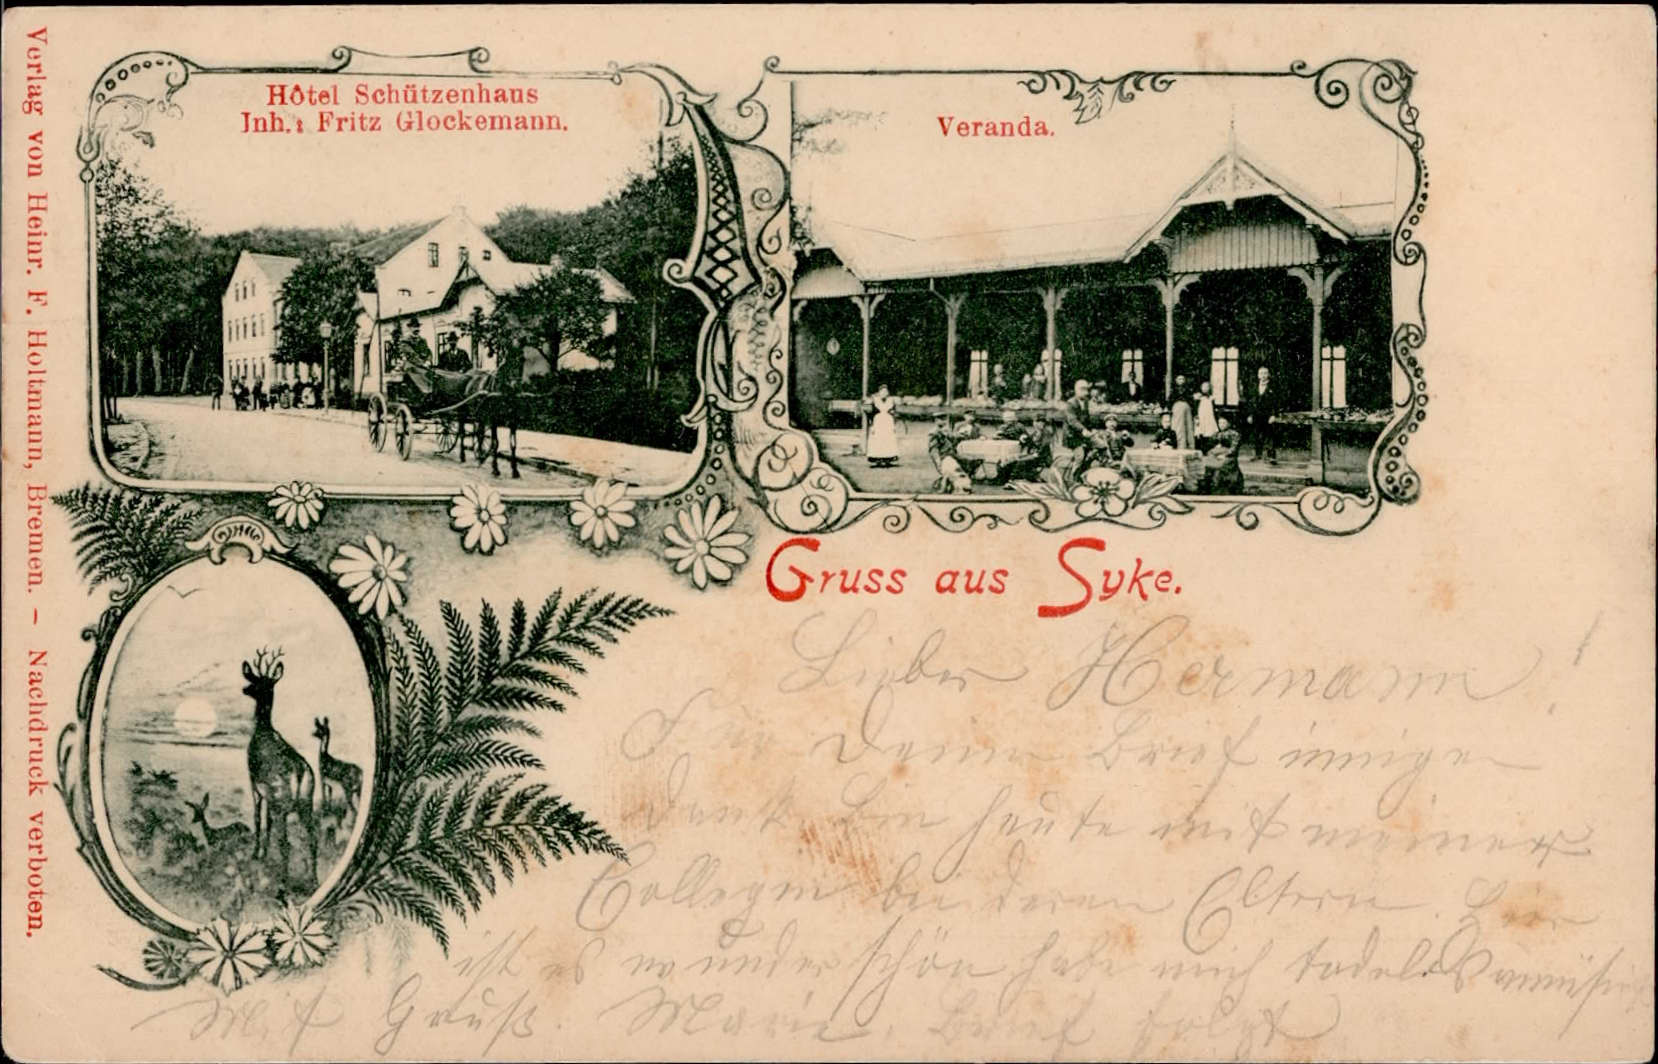 Hôtel Schützenhaus
Inh.: Fritz Glockemann.
Veranda.
Gruss aus Syke.
Lieber Hermann!
Für Deinen Brief innigen
Dank. Bin heute mit meiner
Collegin bei deren Eltern. Hier
ist es wunderschön habe mich tadellos
Mit Gruß. Marie. Brief folgt
Verlag von Heinr. F. Holtmann, Bremen. – Nachdruck verboten.